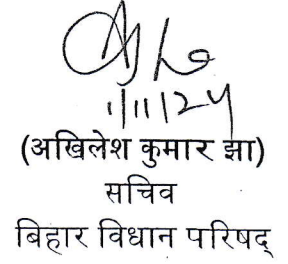 1/11/24
(अखिलेश कुमार झा)
सचिव
बिहार विधान परिषद्